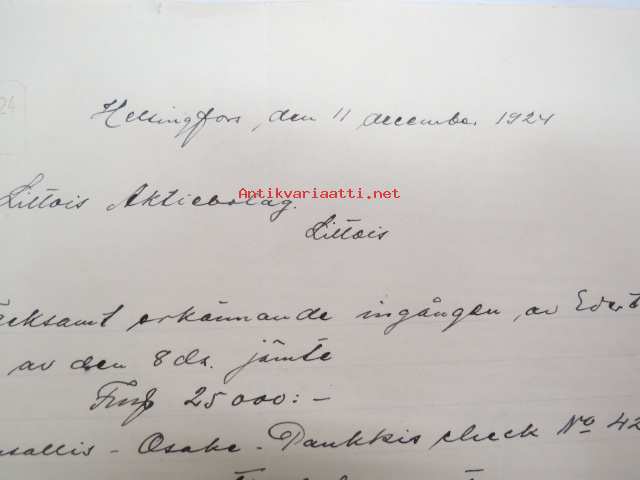 24
Helsingfors, den 11 december 1924
Littois Aktiebolag.
Antikvariaatti.net
Littois
cksamt erkännande ingången av Edert
av den 8 ds. jämte
Fmk 25000:-
nsallis - Osake - Pankkis check No 42